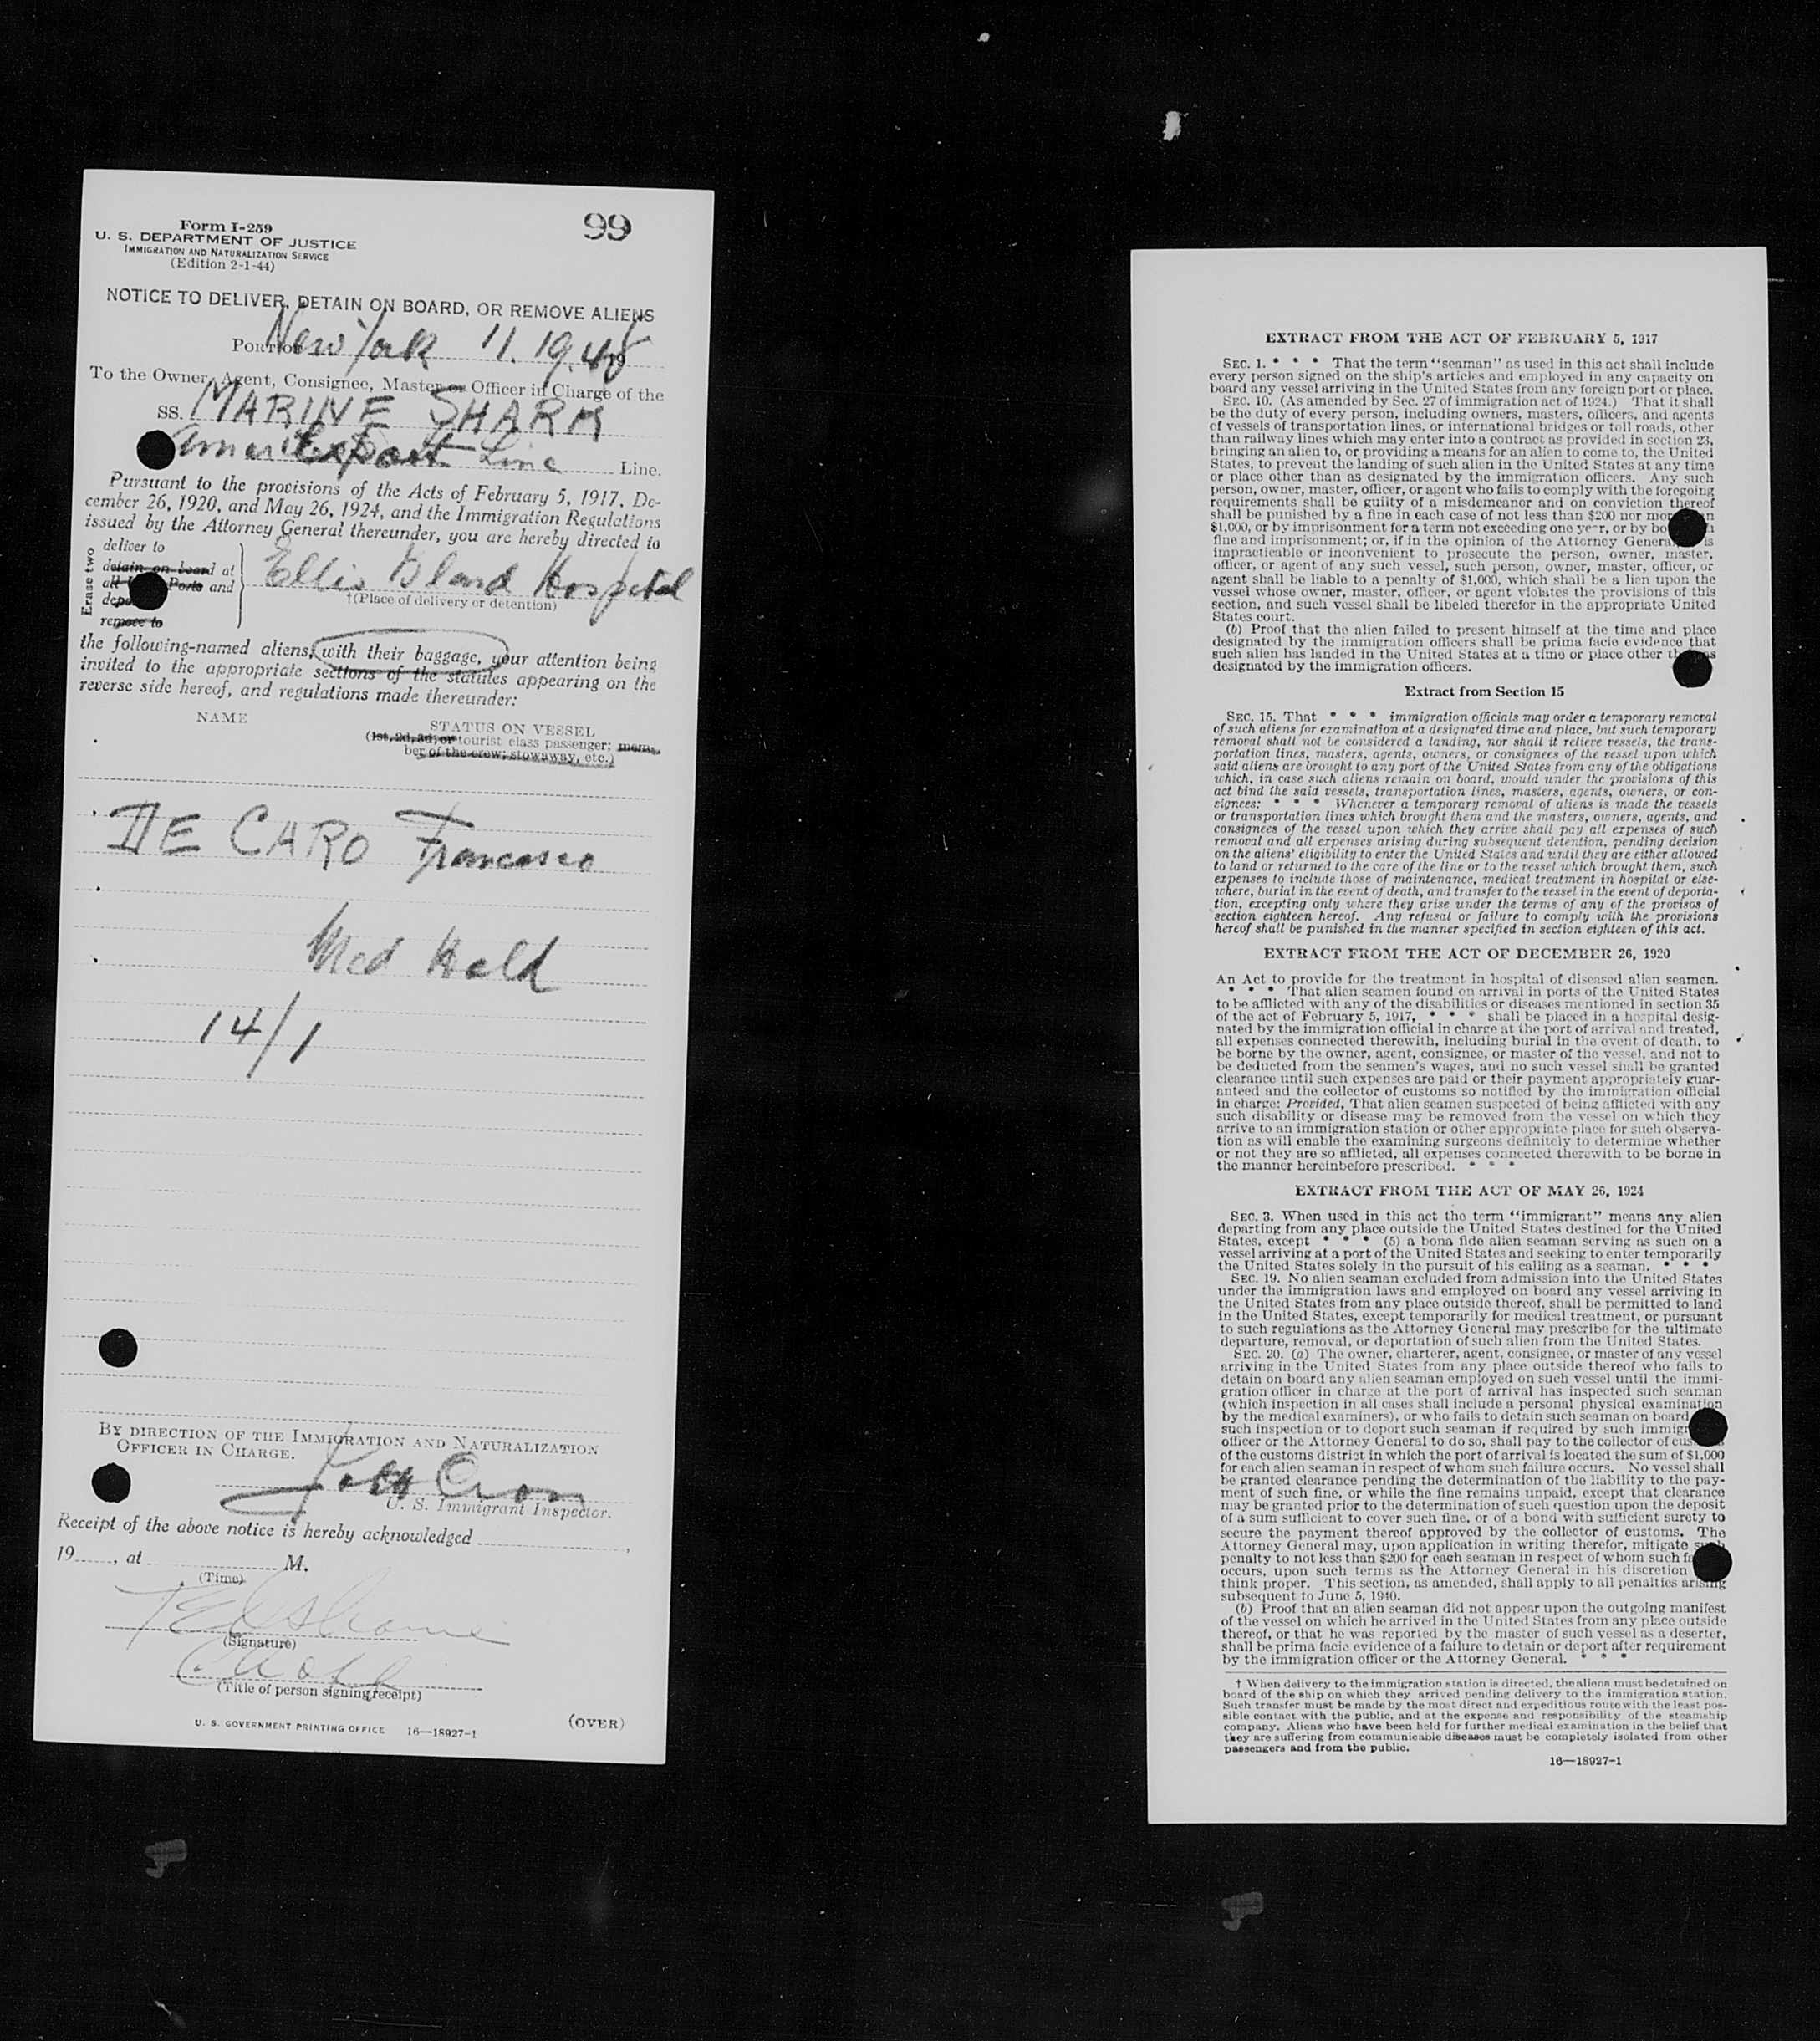 Form I-259
U. S. DEPARTMENT OF JUSTICE
IMMIGRATION AND NATURALIZATION SERVICE
(Edition 2-1-44)
99
NOTICE TO DELIVER, DETAIN ON BOARD, OR REMOVE ALIENS
PORT OF New York 11.19.48 19
To the Owner, Agent, Consignee, Master or Officer in Charge of the
SS. MARINE SHARK
Amer Export Line Line.
Pursuant to the provisions of the Acts of February 5, 1917, De-
cember 26, 1920, and May 26, 1924, and the Immigration Regulations
issued by the Attorney General thereunder, you are hereby directed to
Erase two
deliver to
detain on board at
all Ports and
remove to
Ellis Island Hospital
†(Place of delivery or detention)
the following-named aliens, with their baggage, your attention being
invited to the appropriate sections of the statutes appearing on the
reverse side hereof, and regulations made thereunder:
NAME
STATUS ON VESSEL
(1st, 2d, 3d, or tourist class passenger; mem-
ber of the crew; stowaway, etc.)
DE CARO Francesco
Med Held
14/1
BY DIRECTION OF THE IMMIGRATION AND NATURALIZATION
OFFICER IN CHARGE.
U. S. Immigrant Inspector.
Receipt of the above notice is hereby acknowledged
19......, at M.
(Time)
(Signature)
(Title of person signing receipt)
U. S. GOVERNMENT PRINTING OFFICE 16—18927-1
(OVER)
EXTRACT FROM THE ACT OF FEBRUARY 5, 1917
SEC. 1. * * * That the term “seaman” as used in this act shall include
every person signed on the ship's articles and employed in any capacity on
board any vessel arriving in the United States from any foreign port or place.
SEC. 10. (As amended by Sec. 27 of immigration act of 1924.) That it shall
be the duty of every person, including owners, masters, officers, and agents
of vessels of transportation lines, or international bridges or toll roads, other
than railway lines which may enter into a contract as provided in section 23,
bringing an alien to, or providing a means for an alien to come to, the United
States, to prevent the landing of such alien in the United States at any time
or place other than as designated by the immigration officers. Any such
person, owner, master, officer, or agent who fails to comply with the foregoing
requirements shall be guilty of a misdemeanor and on conviction thereof
shall be punished by a fine in each case of not less than $200 nor
$1,000, or by imprisonment for a term not exceeding one year, or by
fine and imprisonment; or, if in the opinion of the Attorney General is
impracticable or inconvenient to prosecute the person, owner, master,
officer, or agent of any such vessel, such person, owner, master, officer, or
agent shall be liable to a penalty of $1,000, which shall be a lien upon the
vessel whose owner, master, officer, or agent violates the provisions of this
section, and such vessel shall be libeled therefor in the appropriate United
States court.
(b) Proof that the alien failed to present himself at the time and place
designated by the immigration officers shall be prima facie evidence that
such alien has landed in the United States at a time or place other
designated by the immigration officers.
Extract from Section 15
SEC. 15. That * * * immigration officials may order a temporary removal
of such aliens for examination at a designated time and place, but such temporary
removal shall not be considered a landing, nor shall it relieve vessels, the trans-
portation lines, masters, agents, owners, or consignees of the vessel upon which
said aliens are brought to any port of the United States from any of the obligations
which, in case such aliens remain on board, would under the provisions of this
act bind the said vessels, transportation lines, masters, agents, owners, or con-
signees: * * * Whenever a temporary removal of aliens is made the vessels
or transportation lines which brought them and the masters, owners, agents, and
consignees of the vessel upon which they arrive shall pay all expenses of such
removal and all expenses arising during subsequent detention, pending decision
on the aliens' eligibility to enter the United States and until they are either allowed
to land or returned to the care of the line or to the vessel which brought them, such
expenses to include those of maintenance, medical treatment in hospital or else-
where, burial in the event of death, and transfer to the vessel in the event of deporta-
tion, excepting only where they arise under the terms of any of the provisos of
section eighteen hereof. Any refusal or failure to comply with the provisions
hereof shall be punished in the manner specified in section eighteen of this act.
EXTRACT FROM THE ACT OF DECEMBER 26, 1920
An Act to provide for the treatment in hospital of diseased alien seamen.
* * * That alien seamen found on arrival in ports of the United States
to be afflicted with any of the disabilities or diseases mentioned in section 35
of the act of February 5, 1917, * * * shall be placed in a hospital desig-
nated by the immigration official in charge at the port of arrival and treated,
all expenses connected therewith, including burial in the event of death, to
be borne by the owner, agent, consignee, or master of the vessel, and not to
be deducted from the seamen's wages, and no such vessel shall be granted
clearance until such expenses are paid or their payment appropriately guar-
anteed and the collector of customs so notified by the immigration official
in charge: Provided, That alien seamen suspected of being afflicted with any
such disability or disease may be removed from the vessel on which they
arrive to an immigration station or other appropriate place for such observa-
tion as will enable the examining surgeons definitely to determine whether
or not they are so afflicted, all expenses connected therewith to be borne in
the manner hereinbefore prescribed. * * *
EXTRACT FROM THE ACT OF MAY 26, 1924
SEC. 3. When used in this act the term “immigrant” means any alien
departing from any place outside the United States destined for the United
States, except * * * (5) a bona fide alien seaman serving as such on a
vessel arriving at a port of the United States and seeking to enter temporarily
the United States solely in the pursuit of his calling as a seaman. * * *
SEC. 19. No alien seaman excluded from admission into the United States
under the immigration laws and employed on board any vessel arriving in
the United States from any place outside thereof, shall be permitted to land
in the United States, except temporarily for medical treatment, or pursuant
to such regulations as the Attorney General may prescribe for the ultimate
departure, removal, or deportation of such alien from the United States.
SEC. 20. (a) The owner, charterer, agent, consignee, or master of any vessel
arriving in the United States from any place outside thereof who fails to
detain on board any alien seaman employed on such vessel until the immi-
gration officer in charge at the port of arrival has inspected such seaman
(which inspection in all cases shall include a personal physical examination
by the medical examiners), or who fails to detain such seaman on board
such inspection or to deport such seaman if required by such
officer or the Attorney General to do so, shall pay to the collector of
of the customs district in which the port of arrival is located the sum of $1,000
for each alien seaman in respect of whom such failure occurs. No vessel shall
be granted clearance pending the determination of the liability to the pay-
ment of such fine, or while the fine remains unpaid, except that clearance
may be granted prior to the determination of such question upon the deposit
of a sum sufficient to cover such fine, or of a bond with sufficient surety to
secure the payment thereof approved by the collector of customs. The
Attorney General may, upon application in writing therefor, mitigate such
penalty to not less than $200 for each seaman in respect of whom such
occurs, upon such terms as the Attorney General in his discretion
think proper. This section, as amended, shall apply to all penalties arising
subsequent to June 5, 1940.
(b) Proof that an alien seaman did not appear upon the outgoing manifest
of the vessel on which he arrived in the United States from any place outside
thereof, or that he was reported by the master of such vessel as a deserter,
shall be prima facie evidence of a failure to detain or deport after requirement
by the immigration officer or the Attorney General. * * *
† When delivery to the immigration station is directed, the aliens must be detained on
board of the ship on which they arrived pending delivery to the immigration station.
Such transfer must be made by the most direct and expeditious route with the least pos-
sible contact with the public, and at the expense and responsibility of the steamship
company. Aliens who have been held for further medical examination in the belief that
they are suffering from communicable diseases must be completely isolated from other
passengers and from the public.
16—18927-1